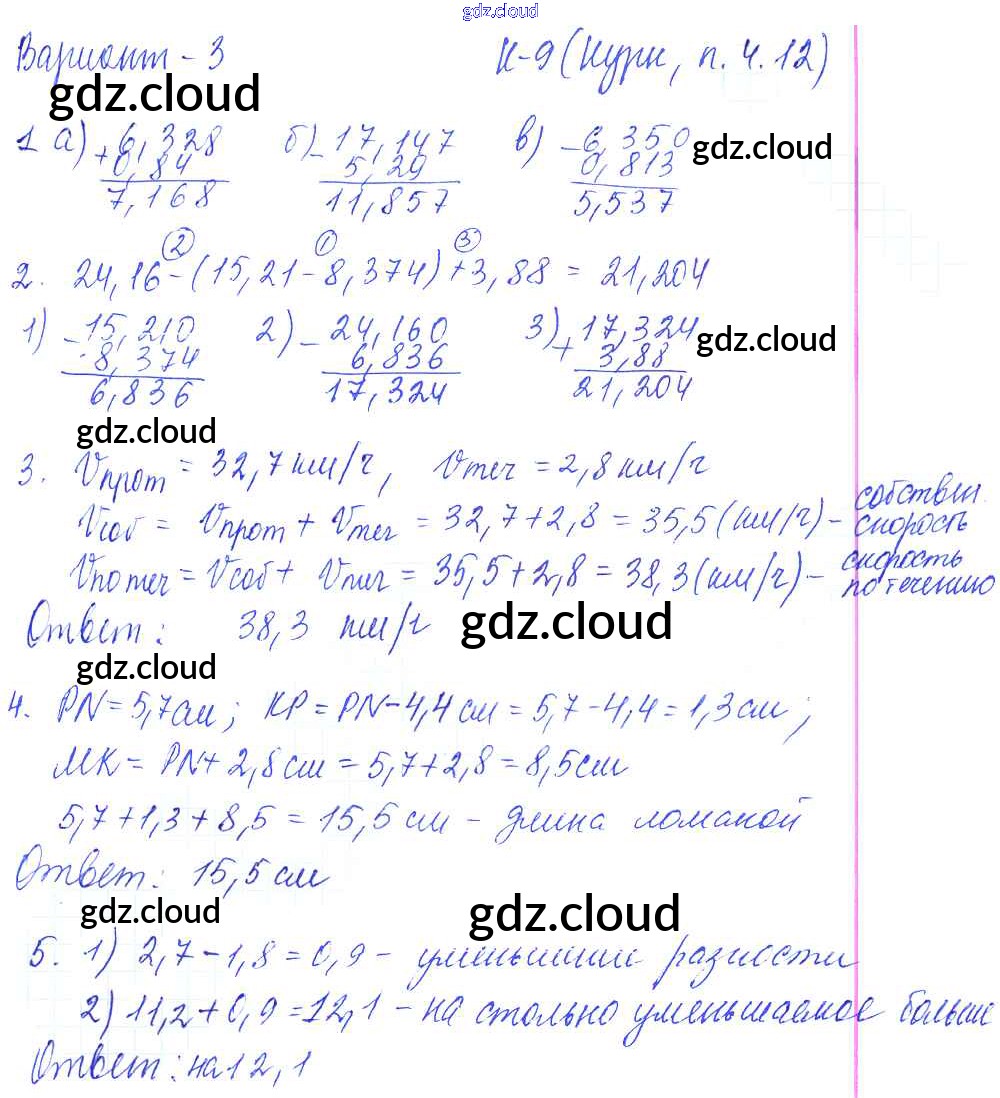 gdz.cloud
Вариант - 3 К-9 (Курк, п. 4.12)
gdz.cloud
1 а) + 6,328 б) - 17,147 в) - 6,350 gdz.cloud
0,84 5,29 0,813
7,168 11,857 5,537
2 1 3
2. 24,16 - (15,21 - 8,374) + 3,88 = 21,204
1) - 15,210 2) - 24,160 3) + 17,324 gdz.cloud
8,374 6,836 3,88
6,836 17,324 21,204
gdz.cloud
3. Vпрот = 32,7 км/ч, Vтеч = 2,8 км/ч
Vсоб = Vпрот + Vтеч = 32,7 + 2,8 = 35,5 (км/ч) - собствен. скорость
Vпо теч = Vсоб + Vтеч = 35,5 + 2,8 = 38,3 (км/ч) - скорость по течению
Ответ: 38,3 км/ч gdz.cloud
gdz.cloud
4. PN = 5,7 см; KP = PN - 4,4 см = 5,7 - 4,4 = 1,3 см;
MK = PN + 2,8 см = 5,7 + 2,8 = 8,5 см
5,7 + 1,3 + 8,5 = 15,5 см - длина ломаной
Ответ: 15,5 см
gdz.cloud gdz.cloud
5. 1) 2,7 - 1,8 = 0,9 - разности
2) 11,2 + 0,9 = 12,1 - на столько уменьшаемое больше
Ответ: на 12,1